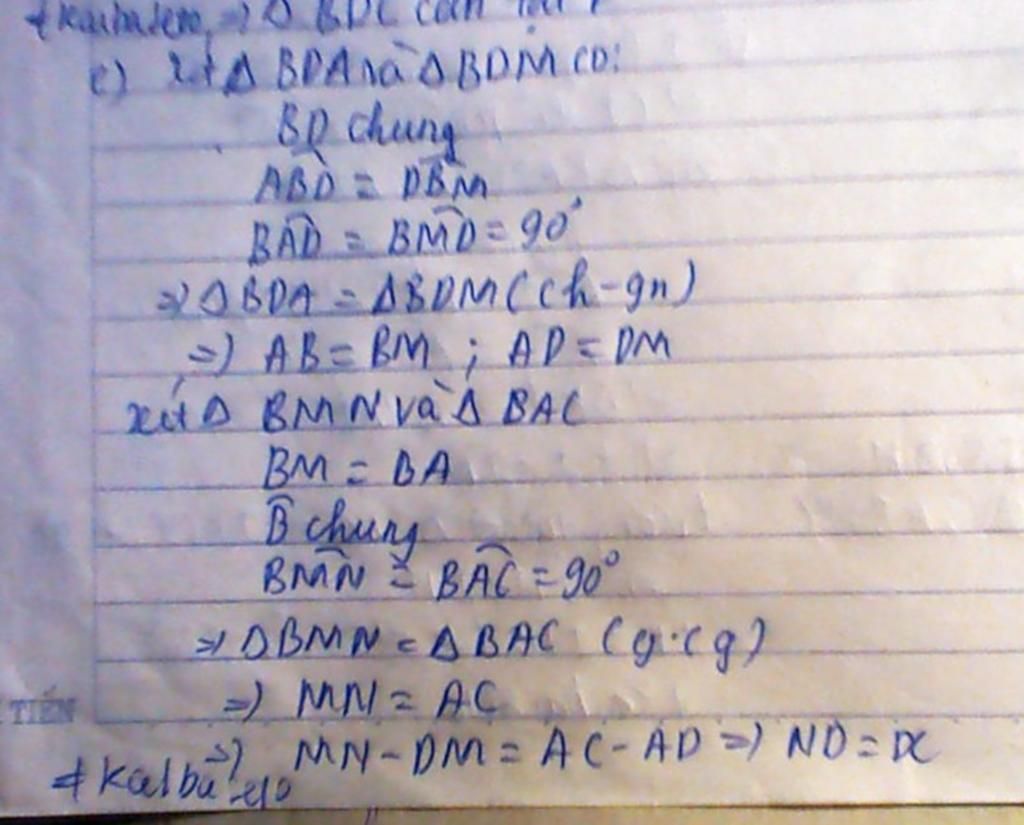 => Δ BDC cân tại
c) xét Δ BDA và Δ BDM có:
BD chung
ABD = DBM
BAD = BMD = 90°
=> Δ BDA = Δ BDM (ch-gn)
=> AB = BM ; AD = DM
xét Δ BMN và Δ BAC
BM = BA
B chung
BMN = BAC = 90°
=> Δ BMN = Δ BAC (g.c g)
=> MN = AC
TIẾN
=> MN - DM = AC - AD => ND = DC